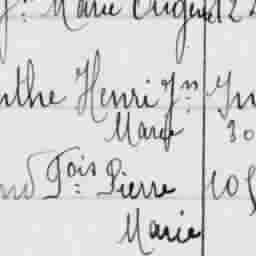 Marie Eugène 12
nthe Henri Jn
Marie 30
nd Fois Pierre 105
Marie